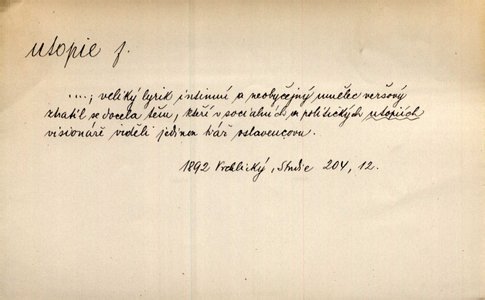 utopie f.
....; veliký lyrik intimní a neobyčejný umělec veršový
ztratil se docela těm, kteří v sociálních a politických utopiích
visionáře viděli jedinou tvář oslavencovu.
1892 Vrchlický, Studie 204, 12.